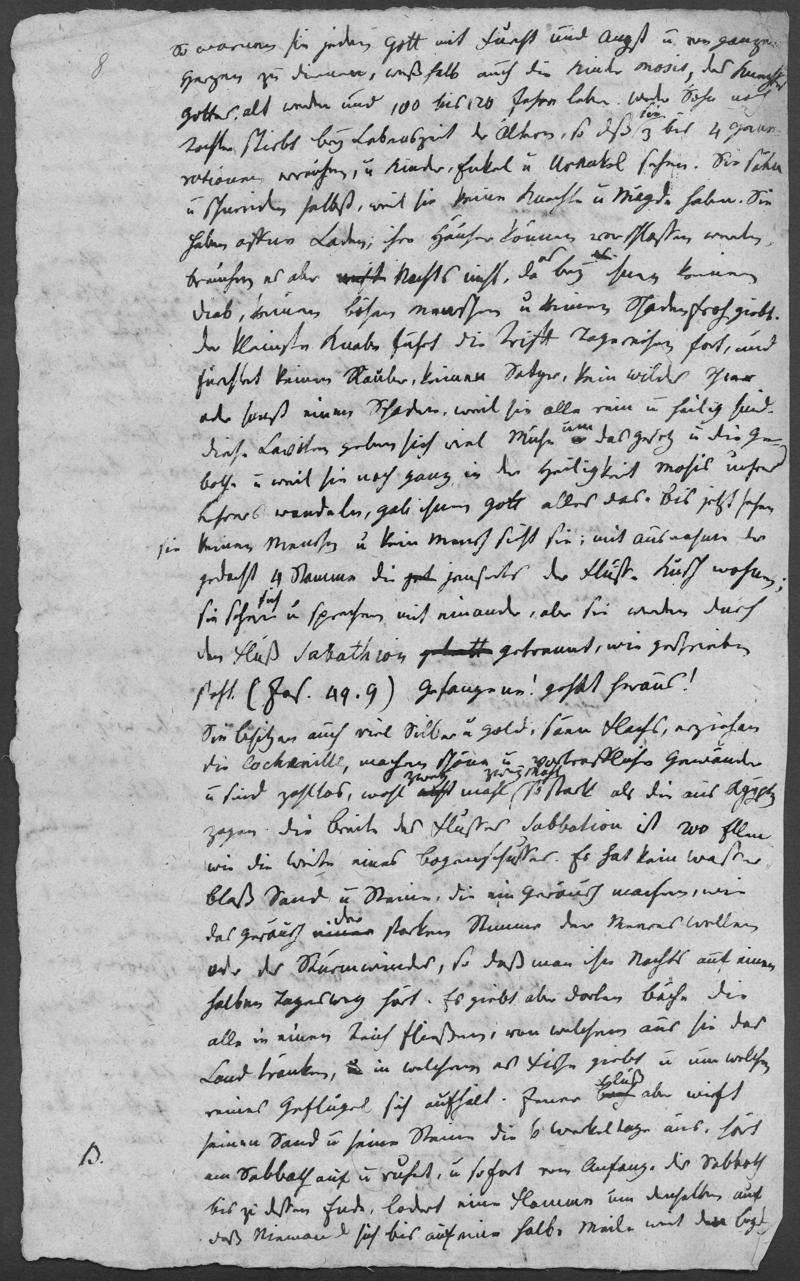 8
So warnen sie jeden Gott mit Furcht und Angst u von ganzem
Herzen zu dienen, weßhalb auch die Kinder Mosis, des Knechtes
Gottes, alt werden und 100 bis 120 Jahre leben. Weder Sohn noch
Tochter stirbt bey Lebenszeit der Ältern, so daß sie 3 bis 4 Gene-
rationen erreichen, u Kinder, Enkel u Urenkel sehen. Sie säen
u schneiden selbst, weil sie keine Knechte u Mägde haben. Sie
haben Laden; ihre Häuser können verschlossen werden,
brauchen es aber Nachts nicht, da es bey ihnen keinen
Dieb, keinen bösen Menschen u keinen Schadenfroh giebt.
Der kleinste Knabe führt die Trift Tagereisen fort, und
fürchtet keinen Räuber, keinen Satyr, kein wildes Thier
oder sonst einen Schaden, weil sie alle rein u heilig sind.
Diese Leviten geben sich viel Mühe um das Gesetz u die Ge-
bothe u weil sie noch ganz in der Heiligkeit Mosis unseres
Lehrers wandeln, gab ihnen Gott alles das. Bis jetzt sehen
sie keinen Menschen u kein Mensch sieht sie; mit Ausnahme der
gedacht 4 Stämme die jenseits der Flüsse Kusch wohnen;
sie sehen sich u sprechen mit einander, aber sie werden durch
den Fluß Sabathion getrennt, wie geschrieben
steht (Jes. 49. 9) Gefangene! gehet heraus!
Sie besitzen auch viel Silber u Gold, säen Flachs, erziehen
die Cochenille, machen schöne u vortreffliche Gewänder
u sind zahllos, wohl zwey mahl so stark als die aus Ägypten
zogen. Die Breite des Flusses Sabbation ist 200 Ellen
wie die Weite eines Bogenschusses. Er hat kein Wasser
bloß Sand u Steine, die ein Geräusch machen, wie
das Geräusch der starken Stimme der Meereswellen
oder des Sturmwindes, so daß man ihn Nachts auf einen
halben Tagesweg hört. Es giebt aber dorten Bäche die
alle in einen Teich fließen, von welchem aus sie das
Land tränken, in welchem es Fische giebt u um welchen
reines Geflügel sich aufhält. Jener Fluß aber wirft
seinen Sand u seine Steine die 6 Werkeltage aus, hört
am Sabbath auf u ruhet, u sofort vom Anfange des Sabbath
bis zu dessen Ende, lodert eine Flamme um denselben auf
daß Niemand sich bis auf eine halbe Meile weit
B.